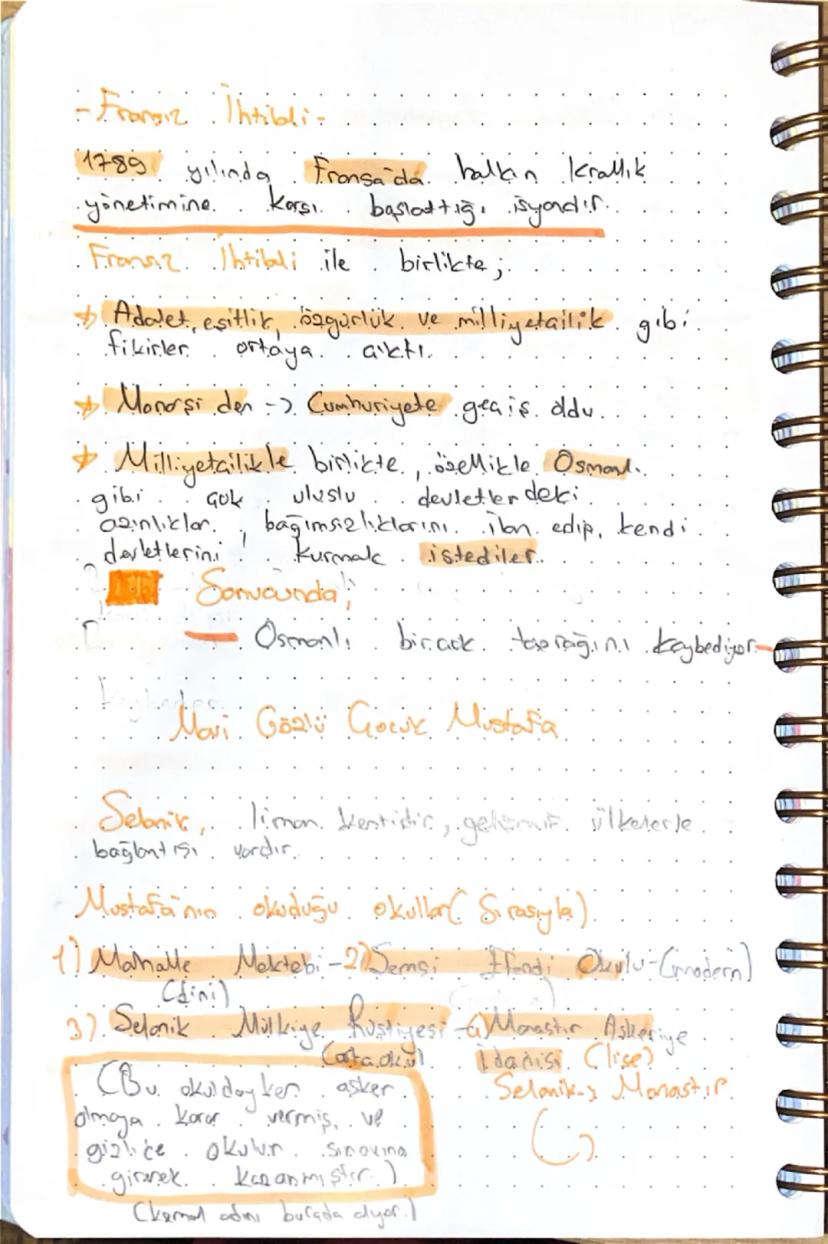 - Fransız İhtilali -
1789 yılında Fransa'da halkın krallık
yönetimine karşı başlattığı isyandır.
Fransız İhtilali ile birlikte;
Adalet, eşitlik, özgürlük ve milliyetçilik gibi
fikirler ortaya çıktı.
Monarşi den -> Cumhuriyete geçiş oldu.
Milliyetçilikle birlikte, özellikle Osmanlı
gibi çok uluslu devletlerdeki
azınlıklar, bağımsızlıklarını ilan edip, kendi
devletlerini kurmak istediler.
Sonucunda;
— Osmanlı birçok toprağını kaybediyor -
Mavi Gözlü Çocuk Mustafa
Selanik, liman kentidir, gelişmiş ülkelerle
bağlantısı vardır.
Mustafa'nın okuduğu okullar (Sırasıyla)
1) Mahalle Mektebi - 2) Şemsi Efendi Okulu - (modern)
(dini)
3) Selanik Mülkiye Rüştiyesi - 4) Monastır Askeriye
(ortaokul İdadisi (lise)
(Bu okuldayken asker Selanik-> Monastır
olmaya karar vermiş, ve
gizlice okulun sınavına
girerek kazanmıştır.)
(kemal adını burada alıyor.)